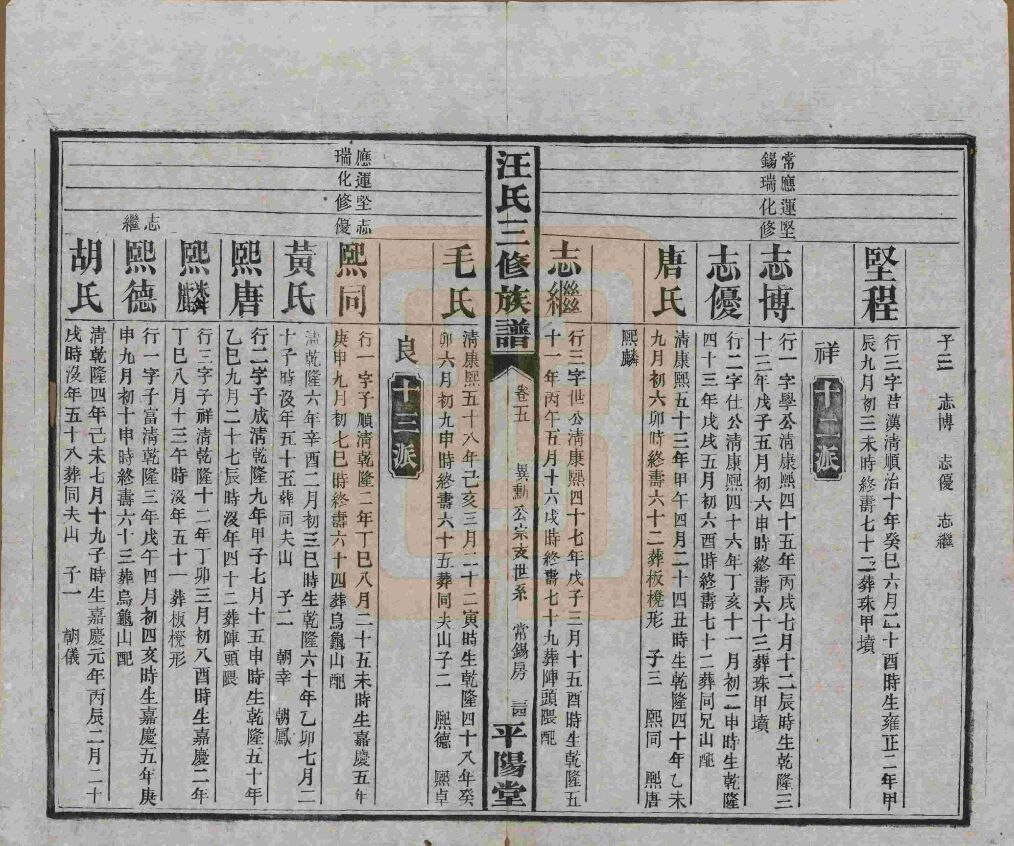 子三 志博 志優 志繼
堅程
行三字昔漢清順治十年癸巳六月二十酉時生雍正二年甲
辰九月初三未時終壽七十二葬珠甲墳
祥 十二派
常應運堅
錫瑞化修
志博
行一字學公清康熙四十五年丙戌七月十二辰時生乾隆三
十三年戊子五月初六申時終壽六十三葬珠甲墳
志優
行二字仕公清康熙四十六年丁亥十一月初二申時生乾隆
四十三年戊戌五月初六酉時終壽七十二葬同兄山配
唐氏
清康熙五十三年甲午四月二十四丑時生乾隆四十年乙未
九月初六卯時終壽六十二葬板櫈形 子三 熙同 熙唐
熙麟
志繼
行三字世公清康熙四十七年戊子三月十五酉時生乾隆五
十一年丙午五月十六戌時終壽七十九葬陣頭隈配
汪氏三修族譜 卷五 異勳公宗支世系 常錫房 平陽堂
毛氏
清康熙五十八年己亥三月二十二寅時生乾隆四十八年癸
卯六月初九申時終壽六十五葬同夫山子二 熙德 熙卓
良 十三派
應運堅志
瑞化修優
熙同
行一字子順清乾隆二年丁巳八月二十五未時生嘉慶五年
庚申九月初七巳時終壽六十四葬烏龜山配
黃氏
清乾隆六年辛酉二月初三巳時生乾隆六十年乙卯七月二
十子時沒年五十五葬同夫山 子二 朝幸 朝鳳
熙唐
行二字子成清乾隆九年甲子七月十五申時生乾隆五十年
乙巳九月二十七辰時沒年四十二葬陣頭隈
熙麟
行三字子祥清乾隆十二年丁卯三月初八酉時生嘉慶二年
丁巳八月十三午時沒年五十一葬板櫈形
志
繼
熙德
行一字子富清乾隆三年戊午四月初四亥時生嘉慶五年庚
申九月初十申時終壽六十三葬烏龜山配
胡氏
清乾隆四年己未七月十九子時生嘉慶元年丙辰二月二十
戌時沒年五十八葬同夫山 子一 朝儀